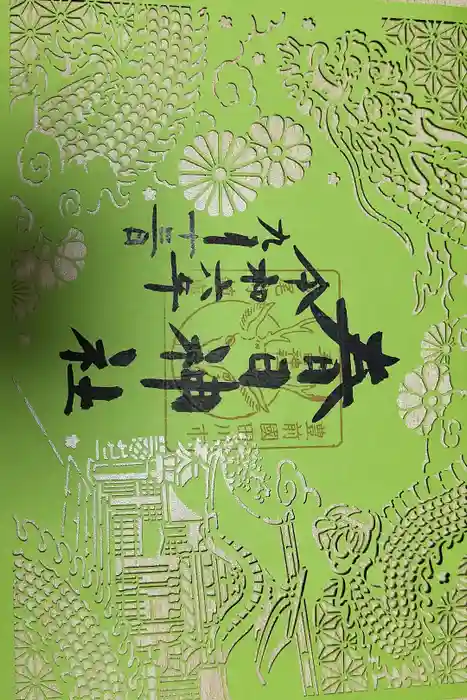 豊前國田川市
春日神社
令和六年
九月十三日